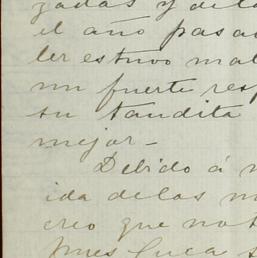 gadas y de la
el año pasa
ler estuvo mal
un fuerte res
su tandita
mejor_
Debido á m
ida de las m
creo que no t